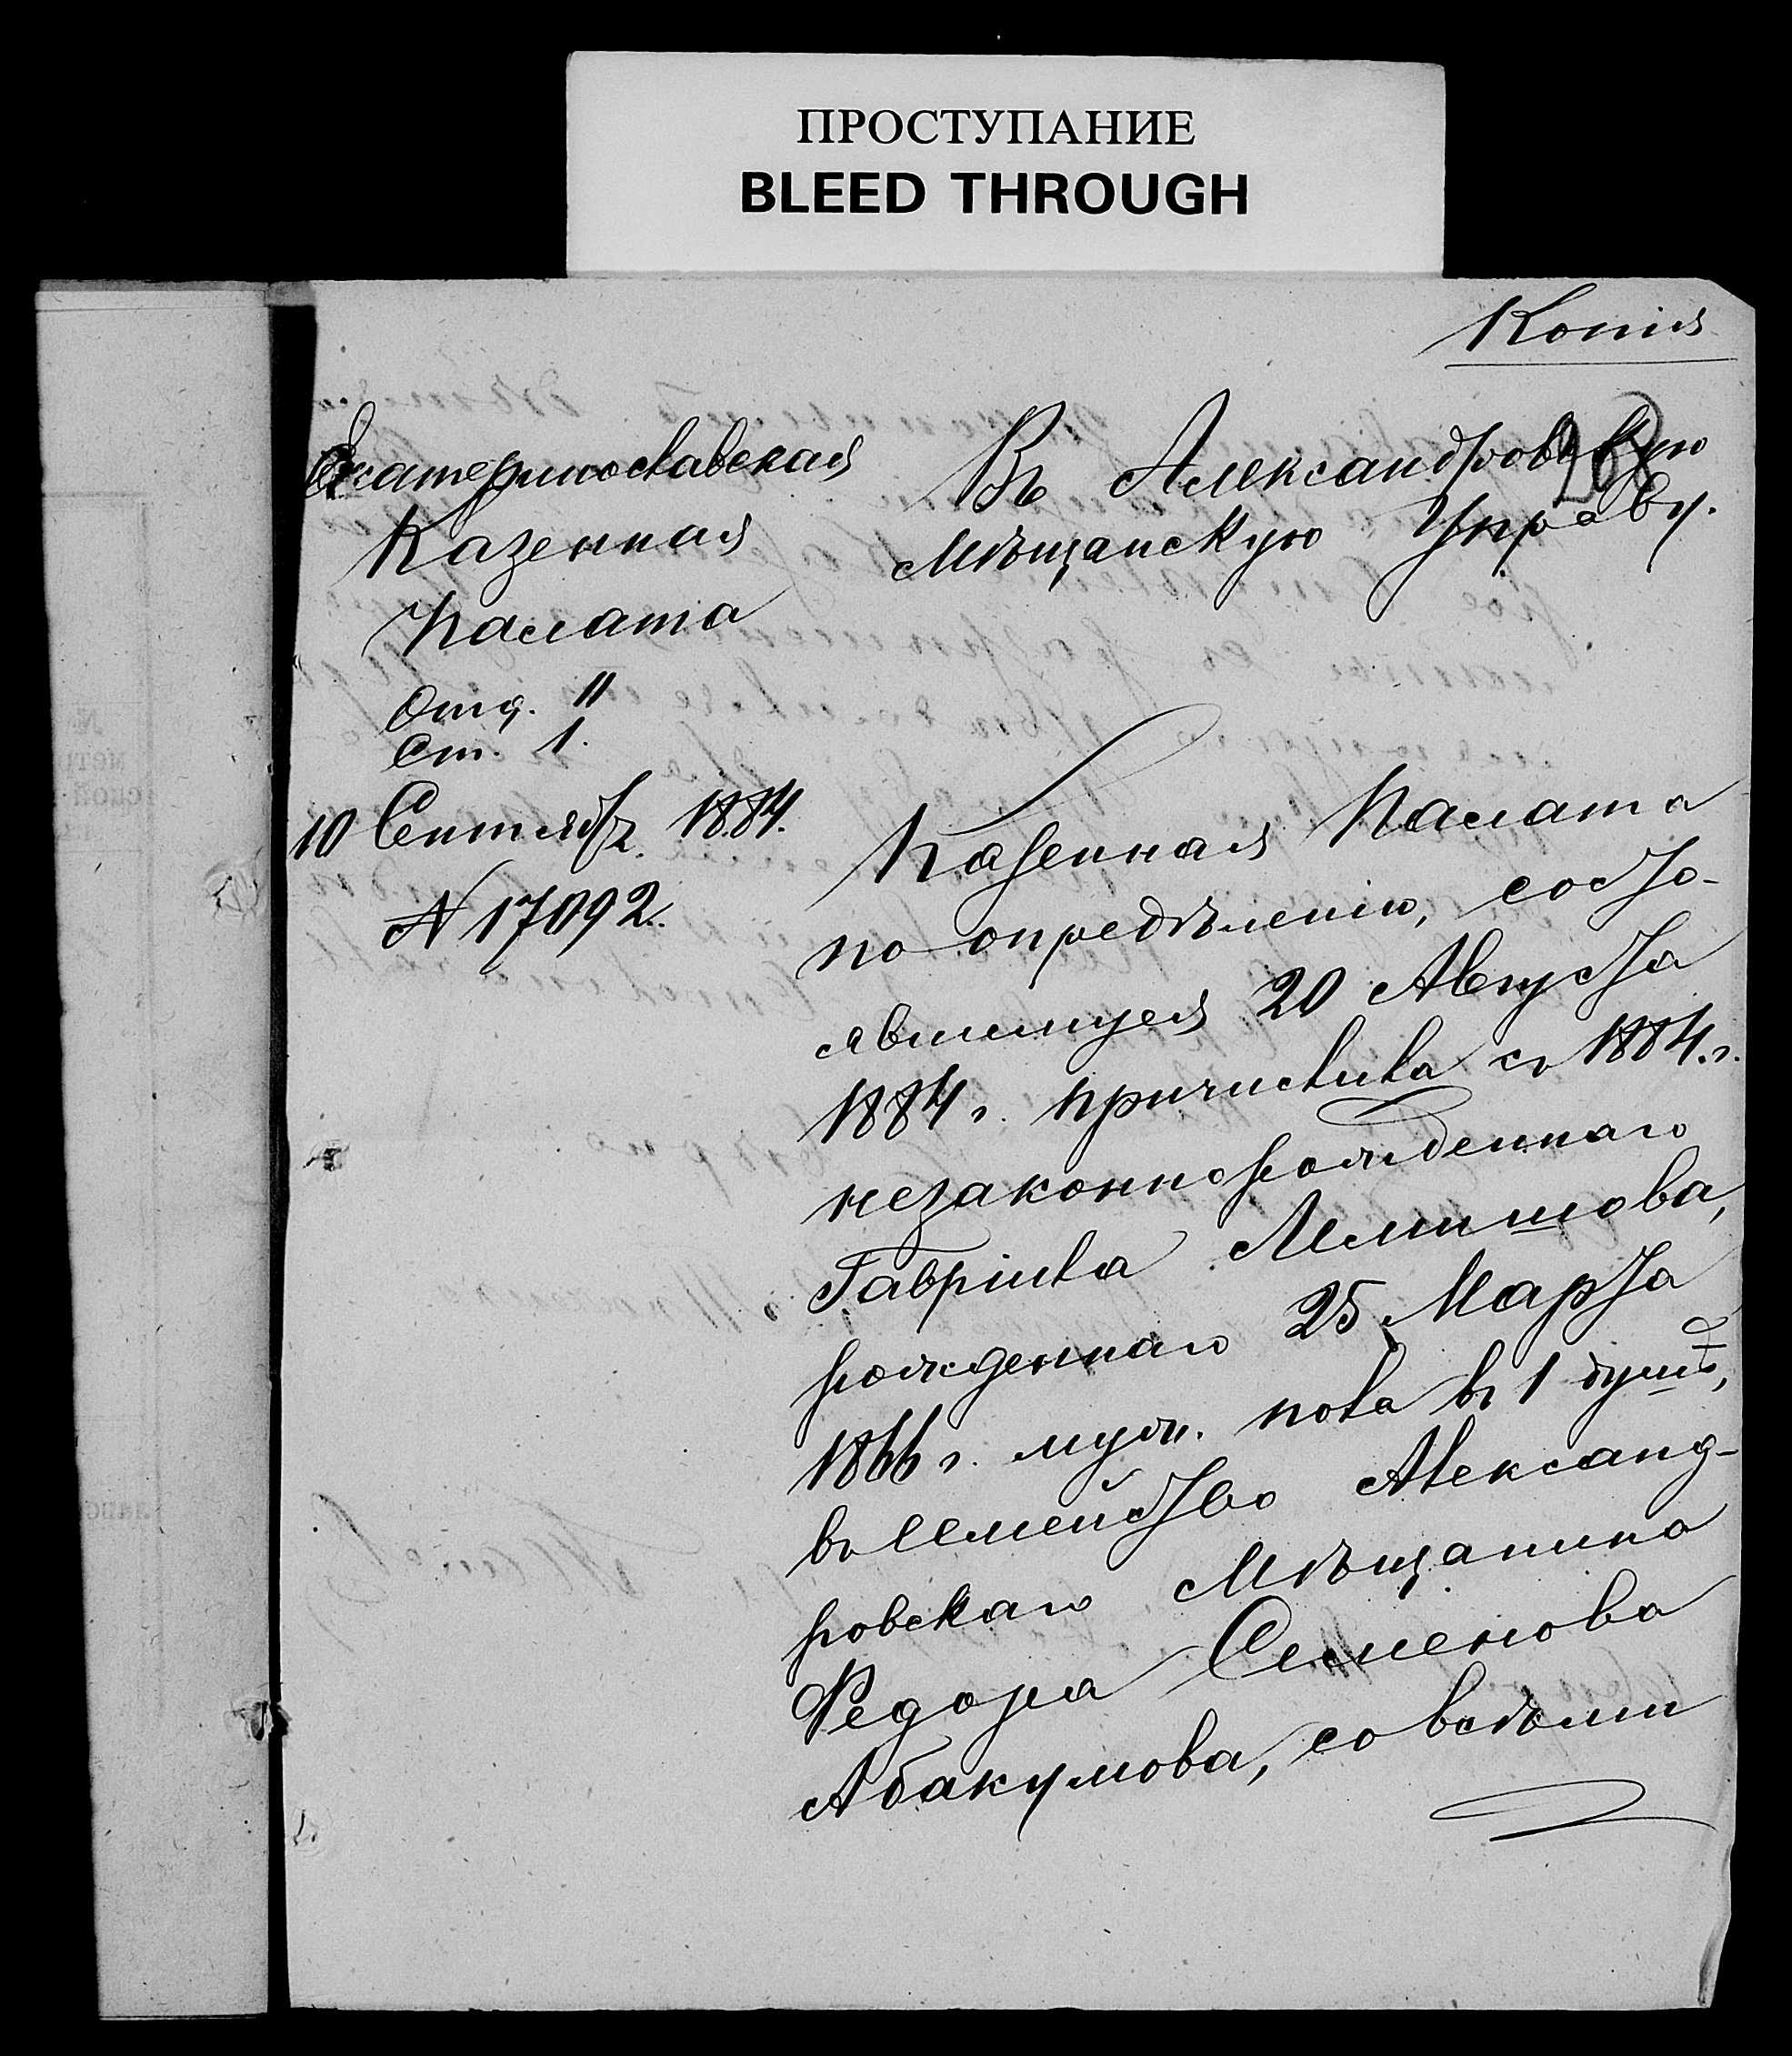 ПРОСТУПАНИЕ
BLEED THROUGH
Копія
268
Екатеринославская
Казенная
Палата
Отд. II
Ст. 1.
10 Сентябр. 1884.
№ 17092.
Въ Александровскую
Мѣщанскую Управу.
Казенная Палата
по опредѣленію, состо-
явшемуся 20 Августа
1884 г. причислила съ 1884 г.
незаконнорожденнаго
Гавріила
рожденнаго 25 Марта
1866 г. муж. пола въ 1 душѣ,
въ семейство Александ-
ровскаго Мѣщанина
Федора Семенова
Абакумова, со всѣми